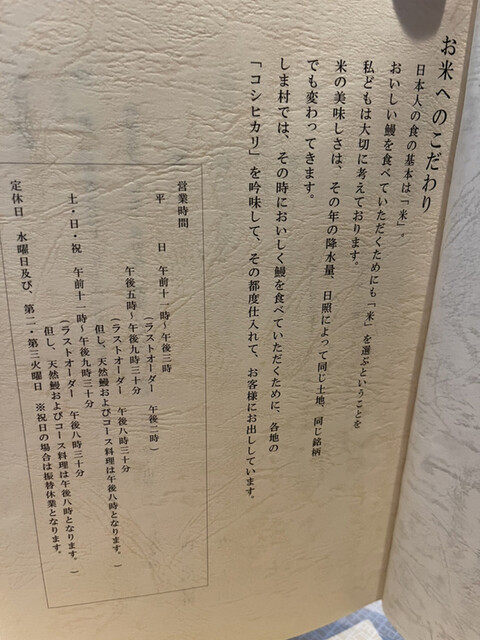 お米へのこだわり
日本人の食の基本は「米」。
おいしい鰻を食べていただくためにも「米」を選ぶということを
私どもは大切に考えております。
米の美味しさは、その年の降水量、日照によって同じ土地、同じ銘柄
でも変わってきます。
しま村では、その時においしく鰻を食べていただくために、各地の
「コシヒカリ」を吟味して、その都度仕入れて、お客様にお出ししています。
営業時間
平 日 午前十一時~午後三時
(ラストオーダー 午後二時)
午後五時~午後九時三十分
(ラストオーダー 午後八時三十分
但し、天然鰻およびコース料理は午後八時となります。)
土・日・祝 午前十一時~午後九時三十分
(ラストオーダー 午後八時三十分
但し、天然鰻およびコース料理は午後八時となります。)
定休日 水曜日及び、第二・第三火曜日 ※祝日の場合は振替休業となります。